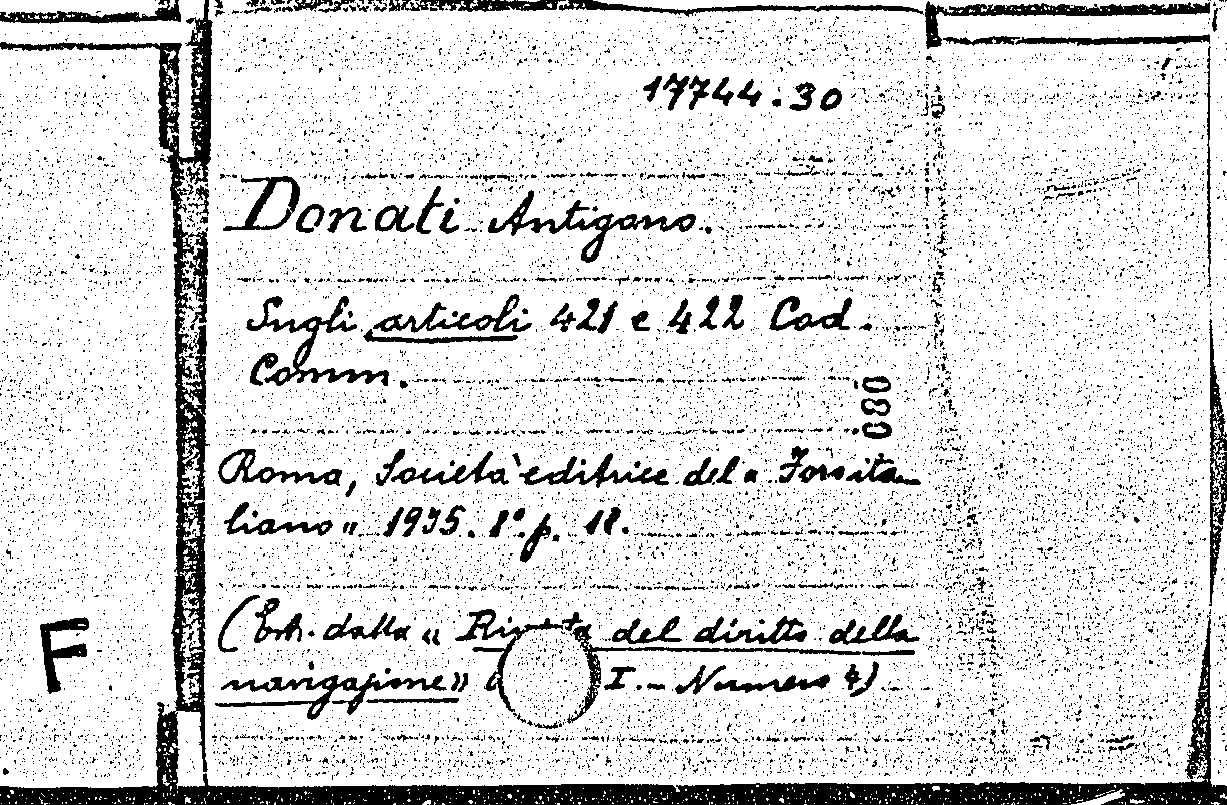 17744.30
Donati Antigono.
Sugli articoli 421 e 422 Cod.
Comm.
080
Roma, Società editrice del « Foro ita-
liano » 1935. 8°. p. 18.
(Estr. dalla « Rivista del diritto della
navigazione» I. - Numero 4)
F